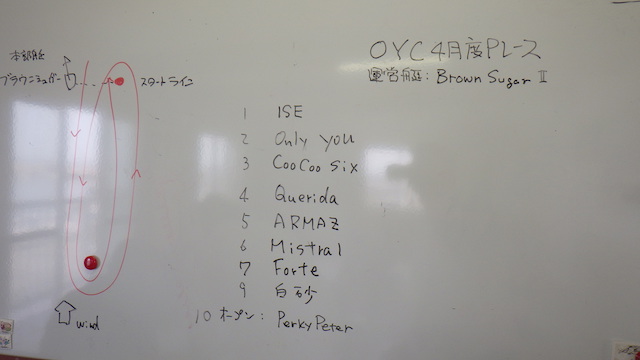 OYC 4月度Pレース
運営艇: Brown Sugar II
本部艇
ブラウンシュガー
スタートライン
1 ISE
2 Only you
3 CooCoo Six
4 Querida
5 ARMAZ
6 Mistral
7 Forte
9 白砂
10 オープン: PerkyPeter
wind